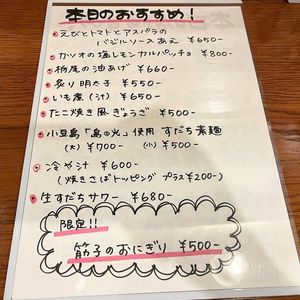 本日のおすすめ!
えびとトマトとアスパラの
バジルソースあえ ¥650-
カツオの塩レモンカルパッチョ ¥800-
栃尾の油あげ ¥660-
炙り明太子 ¥550-
いも煮(汁) ¥650-
たこ焼き風ぎょうざ ¥500-
小豆島「島の光」使用 すだち素麺
(大) ¥700- (小) ¥500-
冷や汁 ¥600-
(焼きさばトッピング プラス¥200-)
生すだちサワー ¥680-
限定!!
筋子のおにぎり ¥500-